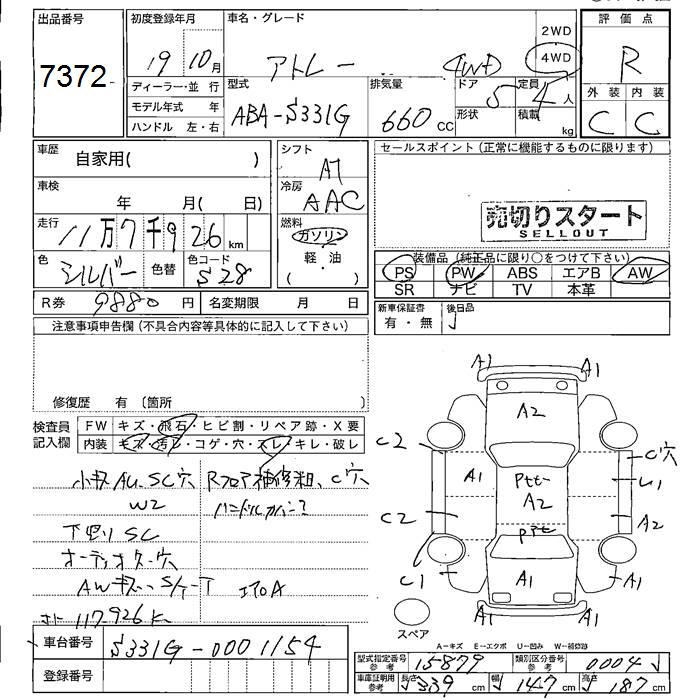 出品番号
7372
初度登録年月
19 10月
車名・グレード
アトレー 4WD
2WD
4WD
評価点
R
ディーラー・並行
モデル年式 年
ハンドル 左・右
型式
ABA-S331G
排気量
660 CC
ドア
5
形状
定員
4人
積載
kg
外装 内装
C C
車歴
自家用( )
シフト
AT
セールスポイント (正常に機能するものに限ります)
車検
年 月( 日)
冷房
AAC
売切りスタート
SELLOUT
走行
11万7千926 km
燃料
ガソリン
軽・油
装備品 (純正品に限り○をつけて下さい)
PS PW ABS エアB AW
SR ナビ TV 本革
色
シルバー
色替
色コード
S28
R券 9880円
名変期限 月 日
新車保証書
有・無
後日品
注意事項申告欄 (不具合内容等具体的に記入して下さい)
修復歴 有 (箇所
検査員
記入欄
FW キズ・飛石・ヒビ割・リペア跡・X要
内装 キズ・汚レ・コゲ・穴・スレ・キレ・破レ
小キズAU SC穴
Rフロア補修粗、C穴
W2
下回りSC
オーディオ穴
AWキズ
エアロA
117.926K
車台番号 S331G-0001154
登録番号
A1 A1
A2
C2 A1 C穴
U1
A2
C2 A2
C1 A1 A1
A1 A1
スペア
A-キズ E-エクボ U-凹み W-補修跡
型式指定番号 参考 15879
類別区分番号 参考 0004
車庫証明用 参考 長さ 339 cm 幅 147 cm 高さ 187 cm